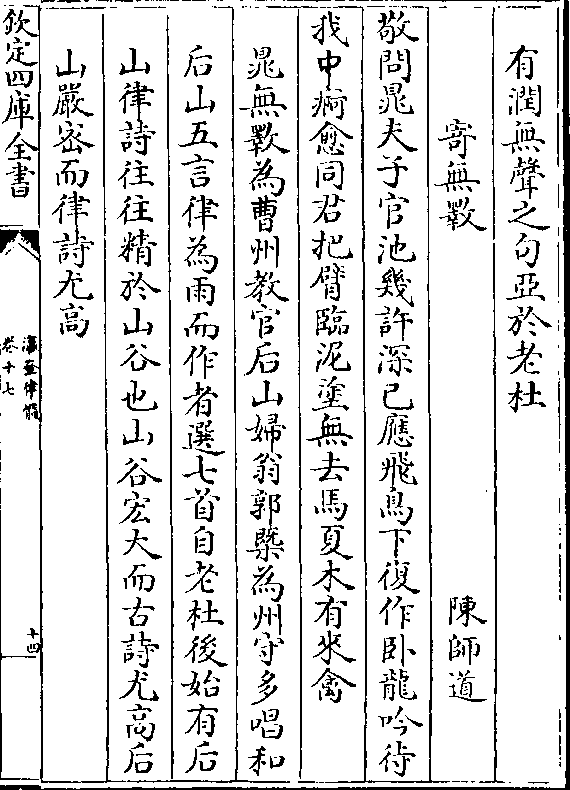 有潤無聲之句亞於老杜
寄無斁
陳師道
敬問晁夫子官池幾許深已應飛鳥下復作卧龍吟待
我中痾愈同君把臂臨泥塗無去馬夏木有來禽
晁無斁為曹州教官后山婦翁郭槩為州守多唱和
后山五言律為雨而作者選七首自老杜後始有后
山律詩往往精於山谷也山谷宏大而古詩尤高后
山嚴宻而律詩尤高
欽定四庫全書
瀛奎律髓
卷十七
十四